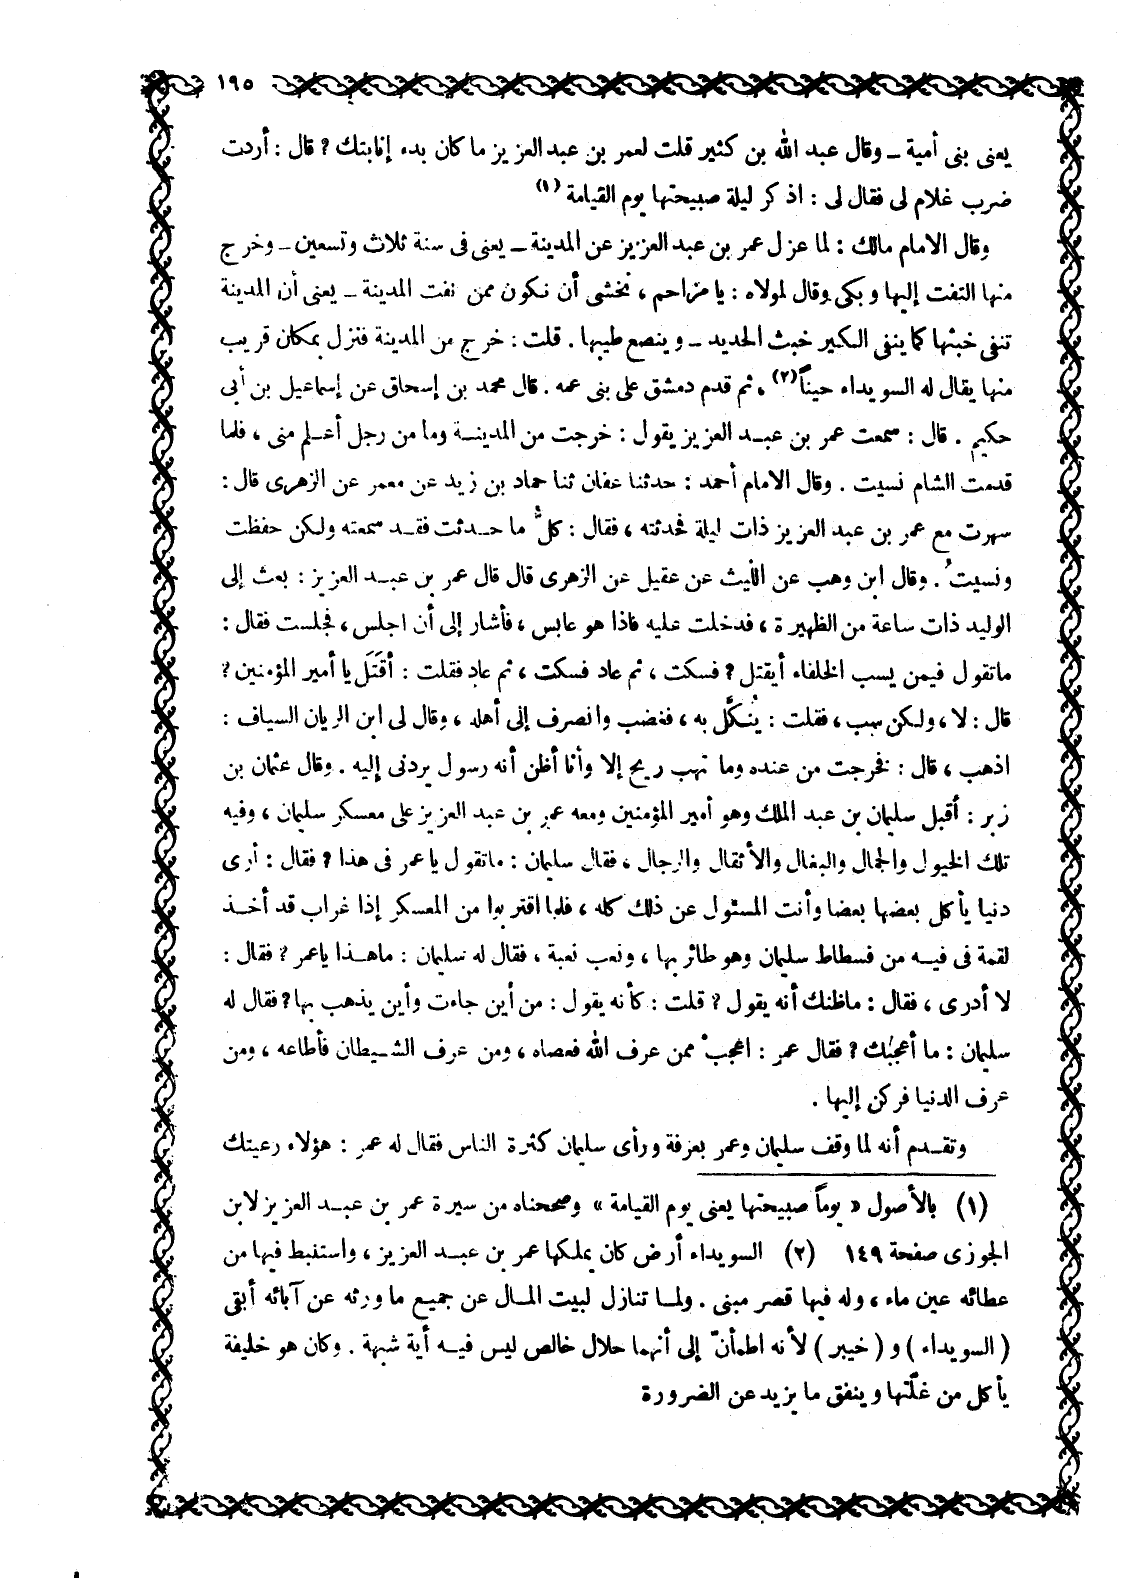 ١٩٥
يعنى بنى أمية ــ وقال عبد الله بن كثير قلت لعمر بن عبد العزيز ما كان بدء إنابتك ? قال : أردت
ضرب غلام لى فقال لى : اذكر ليلة صبيحتها يوم القيامة (١)
وقال الامام مالك : لما عزل عمر بن عبد العزيز عن المدينة ــ يعنى فى سنة ثلاث وتسعين ــ وخرج
منها التفت إليها وبكى وقال لمولاه : يا مزاحم ، نخشى أن نكون ممن نفت المدينة ــ يعنى أن المدينة
تنفى خبثها كما ينفى الكير خبث الحديد ــ وينصع طيبها . قلت : خرج من المدينة فنزل بمكان قريب
منها يقال له السويداء حيناً (٢) ، ثم قدم دمشق على بنى عمه . قال محمد بن إسحاق عن إسماعيل بن أبى
حكيم . قال : سمعت عمر بن عبد العزيز يقول : خرجت من المدينة وما من رجل أعلم منى ، فلما
قدمت الشام نسيت . وقال الامام أحمد : حدثنا عفان ثنا حماد بن زيد عن معمر عن الزهرى قال :
سهرت مع عمر بن عبد العزيز ذات ليلة فحدثته ، فقال : كلُّ ما حدثت فقد سمعته ولكن حفظت
ونسيتُ . وقال ابن وهب عن الليث عن عقيل عن الزهرى قال قال عمر بن عبد العزيز : بعث إلى
الوليد ذات ساعة من الظهيرة ، فدخلت عليه فاذا هو عابس ، فأشار إلى أن اجلس ، فجلست فقال :
ماتقول فيمن يسب الخلفاء أيقتل ? فسكت ، ثم عاد فسكت ، ثم عاد فقلت : أقَتَلَ يا أمير المؤمنين ?
قال : لا ، ولكن سب ، فقلت : يُنكَّل به ، فغضب وانصرف إلى أهله ، وقال لى ابن الريان السياف :
اذهب ، قال : فخرجت من عنده وما تهب ريح إلا وأنا أظن أنه رسول يردنى إليه . وقال عثمان بن
زبر : أقبل سليمان بن عبد الملك وهو أمير المؤمنين ومعه عمر بن عبد العزيز على معسكر سليمان ، وفيه
تلك الخيول والجمال والبغال والأثقال والرجال ، فقال سليمان : ماتقول يا عمر فى هذا ? فقال : أرى
دنيا يأكل بعضها بعضا وأنت المسئول عن ذلك كله ، فلما اقتربوا من المعسكر إذا غراب قد أخذ
لقمة فى فيه من فسطاط سليمان وهو طائر بها ، ونعب نعبة ، فقال له سليمان : ماهذا ياعمر ? فقال :
لا أدرى ، فقال : ماظنك أنه يقول ? قلت : كأنه يقول : من أين جاءت وأين يذهب بها ? فقال له
سليمان : ما أعجبك ? فقال عمر : اعجب ممن عرف الله فعصاه ، ومن عرف الشيطان فأطاعه ، ومن
عرف الدنيا فركن إليها .
وتقدم أنه لما وقف سليمان وعمر بعرفة ورأى سليمان كثرة الناس فقال له عمر : هؤلاء رعيتك
(١) بالأصول « يوماً صبيحتها يعنى يوم القيامة » وصححناه من سيرة عمر بن عبد العزيز لابن
الجوزى صفحة ١٤٩ (٢) السويداء أرض كان يملكها عمر بن عبد العزيز ، واستنبط فيها من
عطائه عين ماء ، وله فيها قصر مبنى . ولما تنازل لبيت المال عن جميع ما ورثه عن آبائه أبقى
( السويداء ) و ( خيبر ) لأنه اطمأنّ إلى أنهما حلال خالص ليس فيه أية شبهة . وكان هو خليفة
يأكل من غلّتها وينفق ما يزيد عن الضرورة